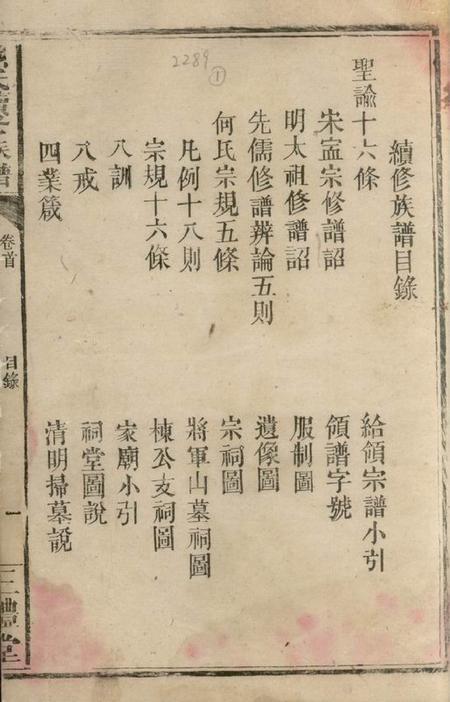 2289
①
續修族譜目錄
聖諭十六條
宋寧宗修譜詔
明太祖修譜詔
先儒修譜辨論五則
何氏宗規五條
凡例十八則
宗規十六條
八訓
八戒
四業箴
給領宗譜小引
領譜字號
服制圖
遺像圖
宗祠圖
將軍山墓祠圖
棟公支祠圖
家廟小引
祠堂圖說
清明掃墓說
族譜
卷首
目錄
一
三禮堂